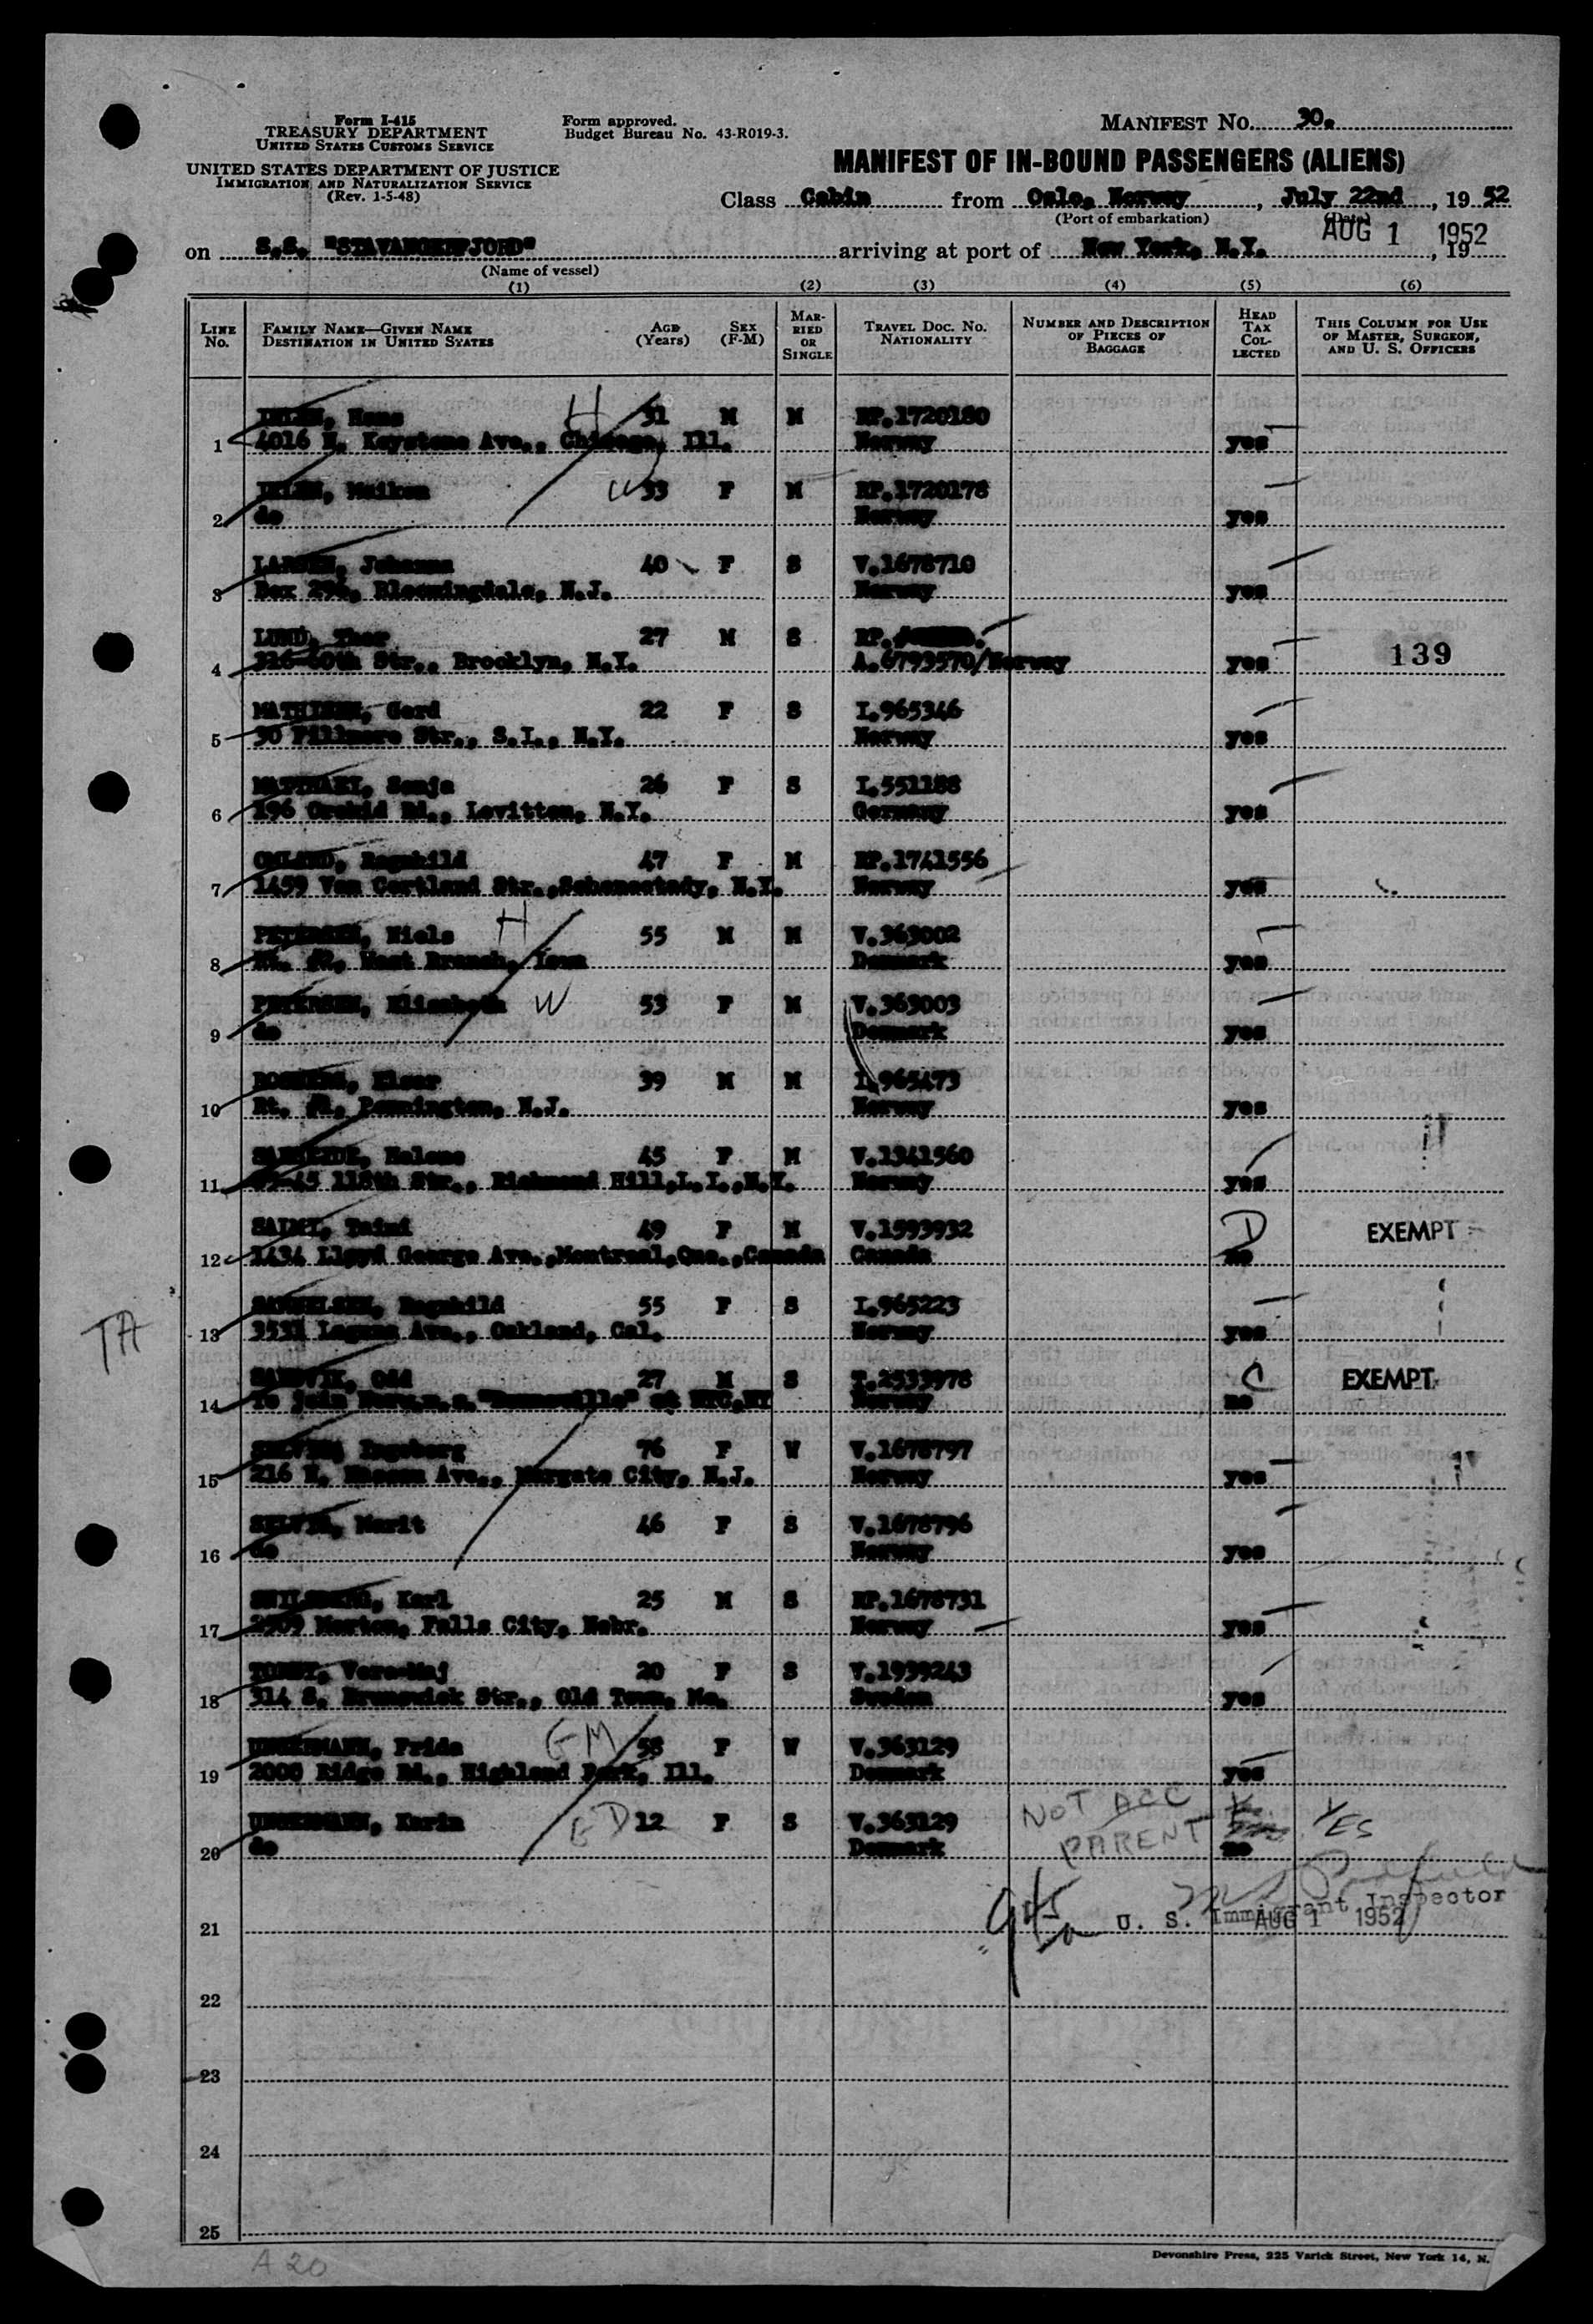 Form I-415
TREASURY DEPARTMENT
UNITED STATES CUSTOMS SERVICE
UNITED STATES DEPARTMENT OF JUSTICE
IMMIGRATION AND NATURALIZATION SERVICE
(Rev. 1-5-48)
Form approved.
Budget Bureau No. 43-R019-3.
MANIFEST NO. 30.
MANIFEST OF IN-BOUND PASSENGERS (ALIENS)
Class Cabin from Oslo, Norway, July 22nd, 19 52
(Port of embarkation) (Date)
on S.S. "STAVANGERFJORD" arriving at port of New York, N.Y. AUG 1 1952, 19
(Name of vessel)
(1) (2) (3) (4) (5) (6)
LINE No. FAMILY NAME—GIVEN NAME DESTINATION IN UNITED STATES AGE (Years) SEX (F-M) MARRIED OR SINGLE TRAVEL DOC. NO. NATIONALITY NUMBER AND DESCRIPTION OF PIECES OF BAGGAGE HEAD TAX COLLECTED THIS COLUMN FOR USE OF MASTER, SURGEON, AND U. S. OFFICERS
Hans H 31 M M RP.1720180
1 4016 N. Keystone Ave., Chicago, Ill. Norway yes
Maiken W 33 F M RP.1720178
2 do Norway yes
LARSEN, Johanna 40 F S V.1678710
3 Box 296, Bloomingdale, N.J. Norway yes
LUND, Thor 27 M S RP.
4 316-60th Str., Brooklyn, N.Y. A.6793570/Norway yes 139
MATHISEN, Gerd 22 F S I.965346
5 30 Fillmore Str., S.I., N.Y. Norway yes
Sonja 26 F S I.551188
6 196 Orchid Rd., Levitton, N.Y. Germany yes
OMLAND, Ragnhild 47 F M RP.1741556
7 1459 Van Cortland Str., Schenectady, N.Y. Norway yes
PETERSEN, Niels H 55 M M V.363002
8 Rt. #2, West Branch, Iowa Denmark yes
PETERSEN, Elisabeth W 53 F M V.363003
9 do Denmark yes
39 M M I.965473
10 Rt. Pennington, N.J. Norway yes
Helene 45 F M V.1341560
11 118th Str., Richmond Hill, L.I., N.Y. Norway yes
SALMI, Taimi 49 F M V.1593932 D EXEMPT
12 1434 Lloyd George Ave., Montreal, Que., Canada Canada no
SAMUELSEN, Ragnhild 55 F S I.965223
13 Laguna Ave., Oakland, Cal. Norway yes
TA
SANDVIK, Odd 27 M S T.2533978 C EXEMPT
14 To join Norw.m.s. at NYC,NY Norway no
SELVIG, Ingeborg 76 F W V.1678797
15 216 N. Ave., Margate City, N.J. Norway yes
SELVIG, Marit 46 F S V.1678796
16 do Norway yes
Karl 25 M S RP.1678731
17 2909 Morton, Falls City, Nebr. Norway yes
Vera-Maj 20 F S V.1999243
18 314 S. Brunswick Str., Old Town, Me. Sweden yes
Frida GM 58 F W V.363129
19 2000 Ridge Rd., Highland Park, Ill. Denmark yes
Karin GD 12 F S V.363129 NOT ACC PARENT YES
20 do Denmark no
U. S. Immigrant Inspector
AUG 1 1952
21
22
23
24
25
A 20
Devonshire Press, 225 Varick Street, New York 14, N.